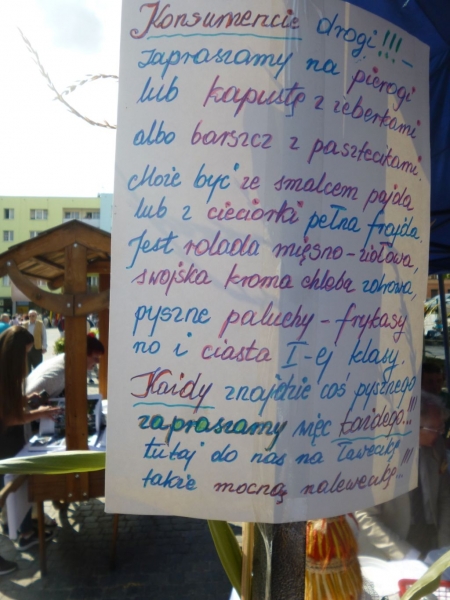 Konsumencie drogi!!! –
zapraszamy na pierogi
lub kapustę z żeberkami
albo barszcz z pasztecikami.
Może być ze smalcem pajda
lub z cieciorki pełna frajda.
Jest rolada mięsno-ziołowa,
swojska kroma chleba zdrowa,
pyszne paluchy – frykasy
no i ciasta I-ej klasy.
Każdy znajdzie coś pysznego
zapraszamy więc każdego...!!!
tutaj do nas na ławeczkę
także mocną naleweczkę...!!!